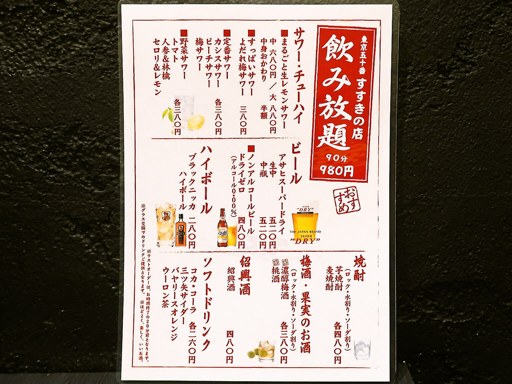 東京五十番
すすきの店
飲み放題
90分
980円
おすすめ
サワー・チューハイ
■まるごと生レモンサワー
中 六八〇円／大 八八〇円
中身おかわり 半額
■すっぱいサワー
よだれ梅サワー 三八〇円
■定番サワー
カシスサワー
ピーチサワー
梅サワー
各三八〇円
■野菜サワー
トマト
人参&林檎
セロリ&レモン
各三八〇円
ビール
アサヒスーパードライ
生中 五二〇円
中瓶 五二〇円
■ノンアルコールビール
ドライゼロ 四八〇円
(アルコール0.00%)
ハイボール
ブラックニッカ
ハイボール 二八〇円
焼酎
(ロック・水割り・ソーダ割り)
芋焼酎
麦焼酎
各四八〇円
梅酒・果実のお酒
(ロック・水割り・ソーダ割り)
濃醇梅酒
桃酒
各三八〇円
紹興酒
紹興酒 四八〇円
ソフトドリンク
コカ・コーラ
三ツ矢サイダー
バヤリースオレンジ
ウーロン茶
各二六〇円
※ラストオーダーは、お時間終了の20分前となります。
※グラス交換でのドリンクご提供となります。